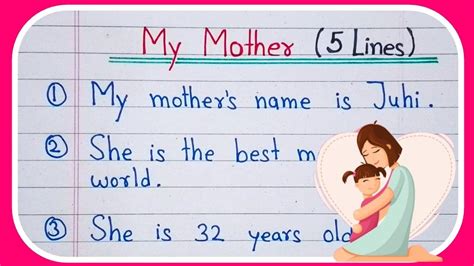 My Mother (5 Lines)
① My mother's name is Juhi.
② She is the best
world.
③ She is 32 years